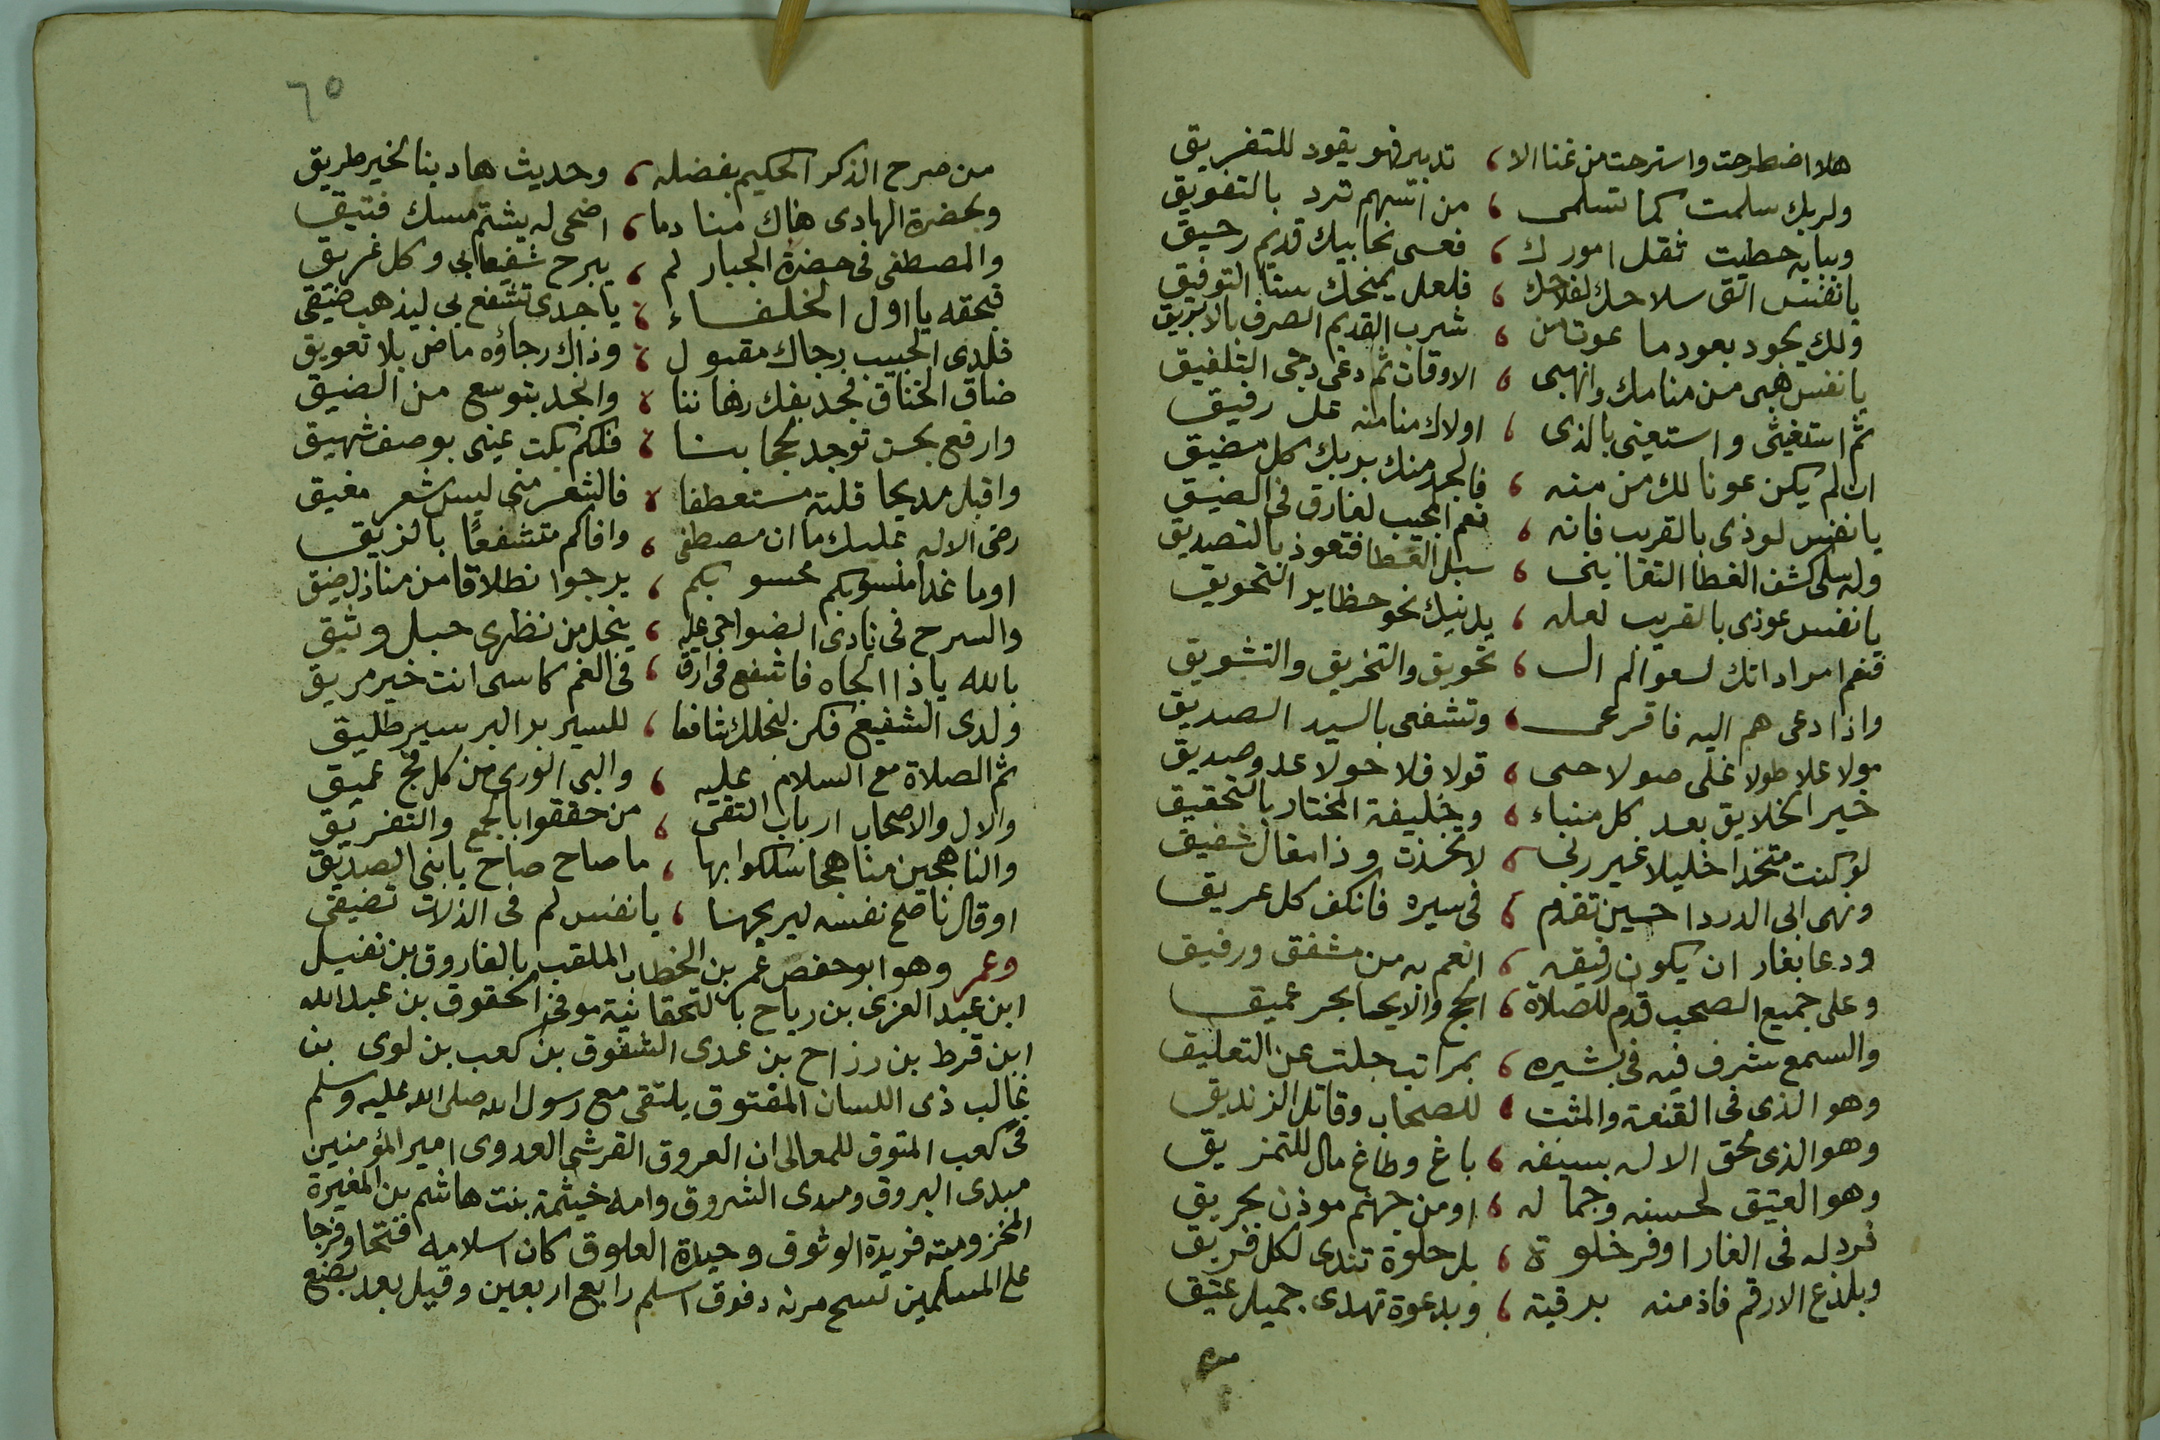 هلا اضطرحت واسترحت من عنا الا ، تدبير فهو يقود للتفريق
ولربك سلمت كما تسلمى ، من اسهم ترد بالتفويق
وببابه حطيت ثقل امورك ، فعسى نحابيك قديم رحيق
يانفس القى سلاحك لفلاحك ، فلعل يمنحك التوفيق
ولك يجود بعود ما عودتا من ، شرب القديم الصرف بالابريق
يا نفس هبى من منامك وانهبى ، الاوقات ثم دعى دجى التلفيق
ثم استغيثى واستعينى بالذى ، اولاك منا منه عل رفيق
ان لم يكن عونا لك من منه ، فالجد منك بربك كل مضيق
يا نفس لوذى بالقريب فانه ، نعم المجيب لغارق فى الضيق
وله سلى كشف الغطا التقا ينى ، سبل العطا فتعوذ بالتصديق
يا نفس عوذى بالقريب لعله ، يدنيك نحو حظاير التحويق
فنعم امرادا تك لسعوالم ال ، تحويق والتخريق والتشويق
واذا دعى هم اليه فاقرعى ، وتشفعى بالسيد الصديق
مولا علا طولا على صولا حمى ، قولا فلا حولا عد وصديق
خير الخلايق بعد كل منباء ، وخليفة المختار بالتحقيق
لو كنت متخدا خليلا غير ربى ، لاتخذت وذا مقال شفيق
ونهى ابى الدردا حسين تقدم ، فى سيره فانكف كل عريق
ودعا بغار ان يكون رفيقه ، انعم به من مشفق ورفيق
وعلى جميع الصحب قدم للصلاة ، الحج والايحا بحر عميق
والسمع شرف فيه فى بشيره ، بمراتب جلت عن التعليق
وهو الذى فى القنعة والمثبت ، للصحاب وقاتل الزنديق
وهو الذى محق الاله بسيفه ، باغ وطاغ مال للتمزيق
وهو العتيق لحسنه وجماله ، او من جهنم موذن بحريق
فرد له فى الغار اوفر خلوة ، بل حلوة تندى لكل فريق
وبلذع الارقم فاذ منه برقية ، وبدعوة تهدى جميل عتيق
من
٦٥
من صرح الذكر الحكيم بفضله ، وحديث هادينا لخير طريق
وبحضرة الهادى هناك منا دما ، اضحى له يشتم مسك فتيق
والمصطفى فى حضرة الجبار لم ، يبرح شفيعا بى وكل غريق
فبحقه يا اول الخلفاء ، يا جدى تشفع بى ليذهب ضيقى
فلدى الحبيب رجاك مقبول ، وذاك رجاؤه ماض بلا تعويق
ضاق الخناق فجد بفك رهاننا ، وانجد بتوسع من الضيق
وارفع بحسن توجد لحجابنا ، فلكم بكت عينى بوصف شهيق
واقبل مديحا قلته مستعطفا ، فالشعر منى ليس شعر مفيق
رضى الاله عليك ما ان مصطفى ، وافاكم متشفعا بالزيق
او ما غدا منسوبكم محسوبكم ، يرجوا نطلاقا من منازل ضيق
والسرح فى نادى الضواحى عليه ، ينحل من نظرى حبل وثيق
بالله يا ذا الجاه فاشفع فى ارق ، فى الغم كاسى انت خير مريق
ولدى الشفيع فكن لنجلك شافعا ، للسير بر البر سير طليق
ثم الصلاة مع السلام عليه ، والبى الورى من كل فج عميق
والال والاصحاب ارباب التقى ، من حققوا بالجمع والتفريق
والناهجين مناهجا سلكوا بها ، ما صاح صاح يا بنى الصديق
او قال ناصح نفسه ليريحها ، يا نفس لم فى الذلات تضيقى
وعمر وهو ابو حفص عمر بن الخطاب الملقب بالفاروق بن نفيل
ابن عبد العزى بن رياح بالتحتانية موفى الحقوق بن عبد الله
ابن قرط بن رزاح بن عدى الشفوق بن كعب بن لوى بن
غالب ذى اللسان المفتوق يلتقى مع رسول الله صلى الله عليه وسلم
فى كعب المتوق للمعالى ان العروق القرشى العدوى امير المؤمنين
مبدى البروق ومبدى الشروق وامه خيثمة بنت هاشم بن المغيرة
المخزومية فريدة الوثوق وحيدة العلوق كان اسلامه فتحا وفرجا
على المسلمين فوق اسلم رابع اربعين وقيل بعد بضع